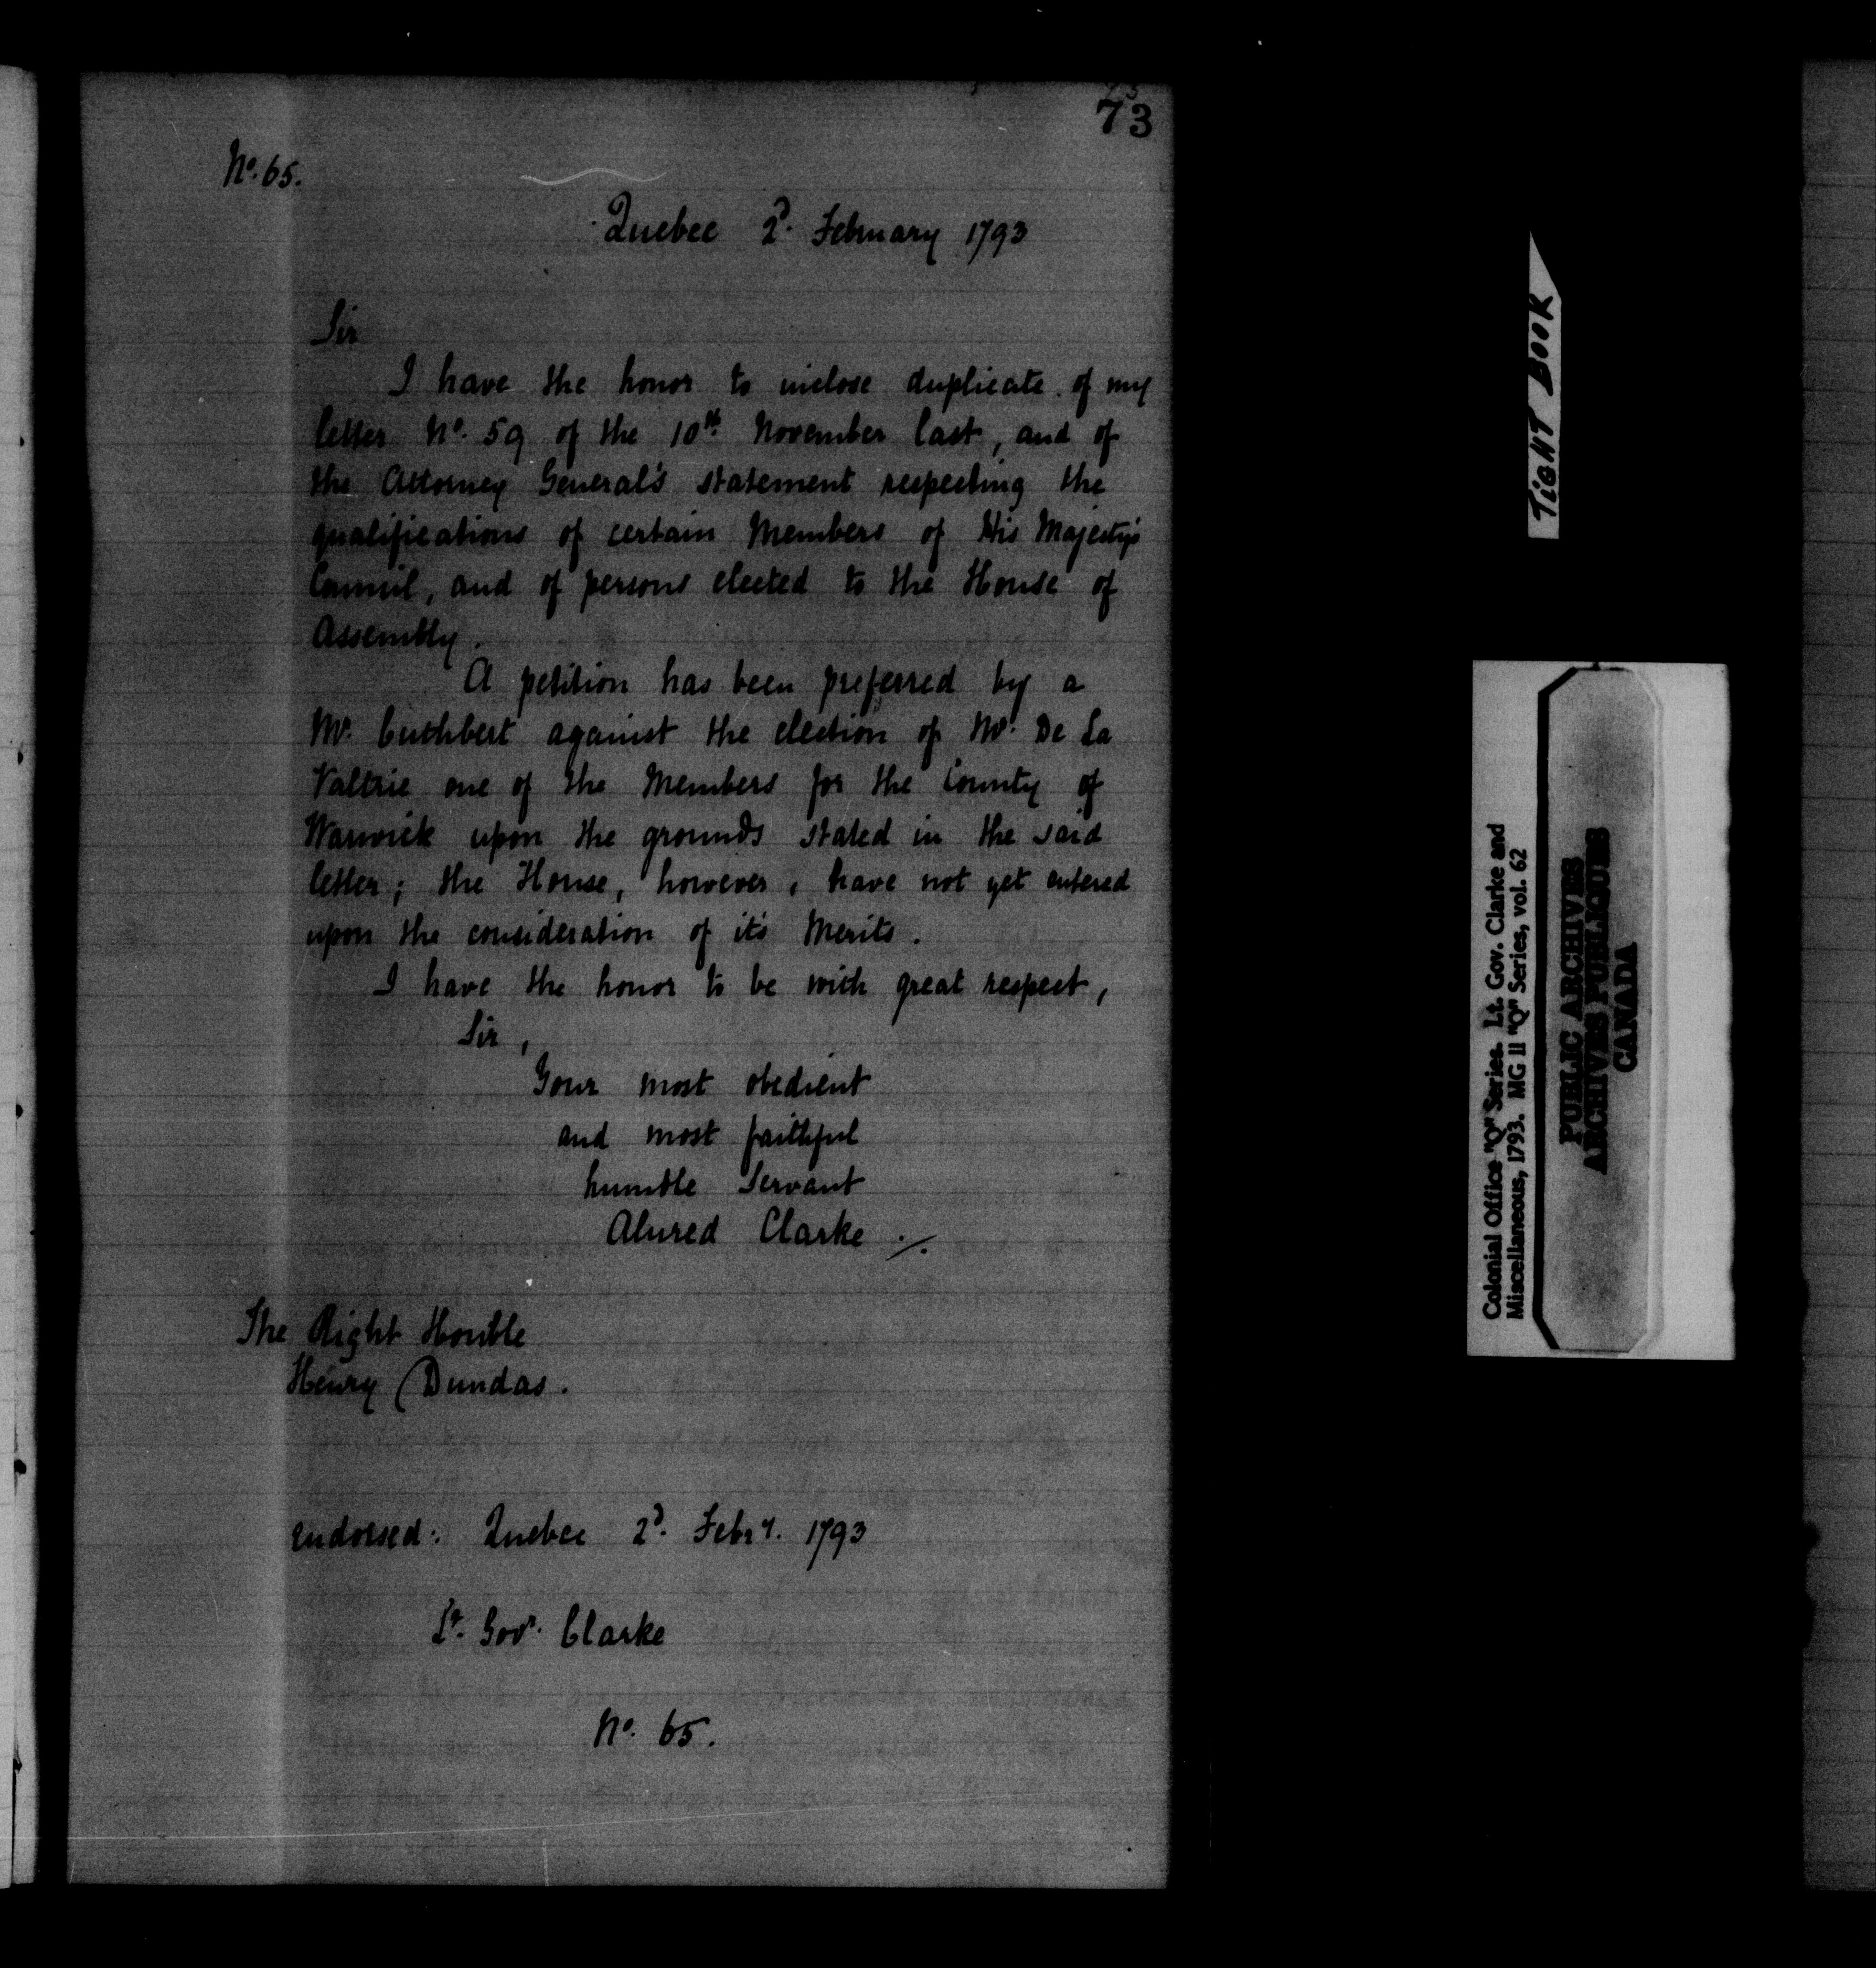 73
No. 65.
Quebec 2d. February 1793
Sir
I have the honor to inclose duplicate of my
letter No. 59 of the 10th November last, and of
the Attorney General's statement respecting the
qualifications of certain Members of His Majesty's
Council, and of persons elected to the House of
Assembly.
A petition has been preferred by a
Mr. Cuthbert against the election of Mr. De La
Valtrie one of the Members for the County of
Warwick upon the grounds stated in the said
letter; the House, however, have not yet entered
upon the consideration of it's Merits.
I have the honor to be with great respect,
Sir,
Your most obedient
and most faithful
humble Servant
Alured Clarke
The Right Honble
Henry Dundas.
endorsed: Quebec 2d. Febry. 1793
Lt. Govr. Clarke
No. 65.
TIGHT BOOK
Colonial Office "Q" Series. Lt. Gov. Clarke and
Miscellaneous, 1793. MG 11 "Q" Series, vol. 62
PUBLIC ARCHIVES
ARCHIVES PUBLIQUES
CANADA